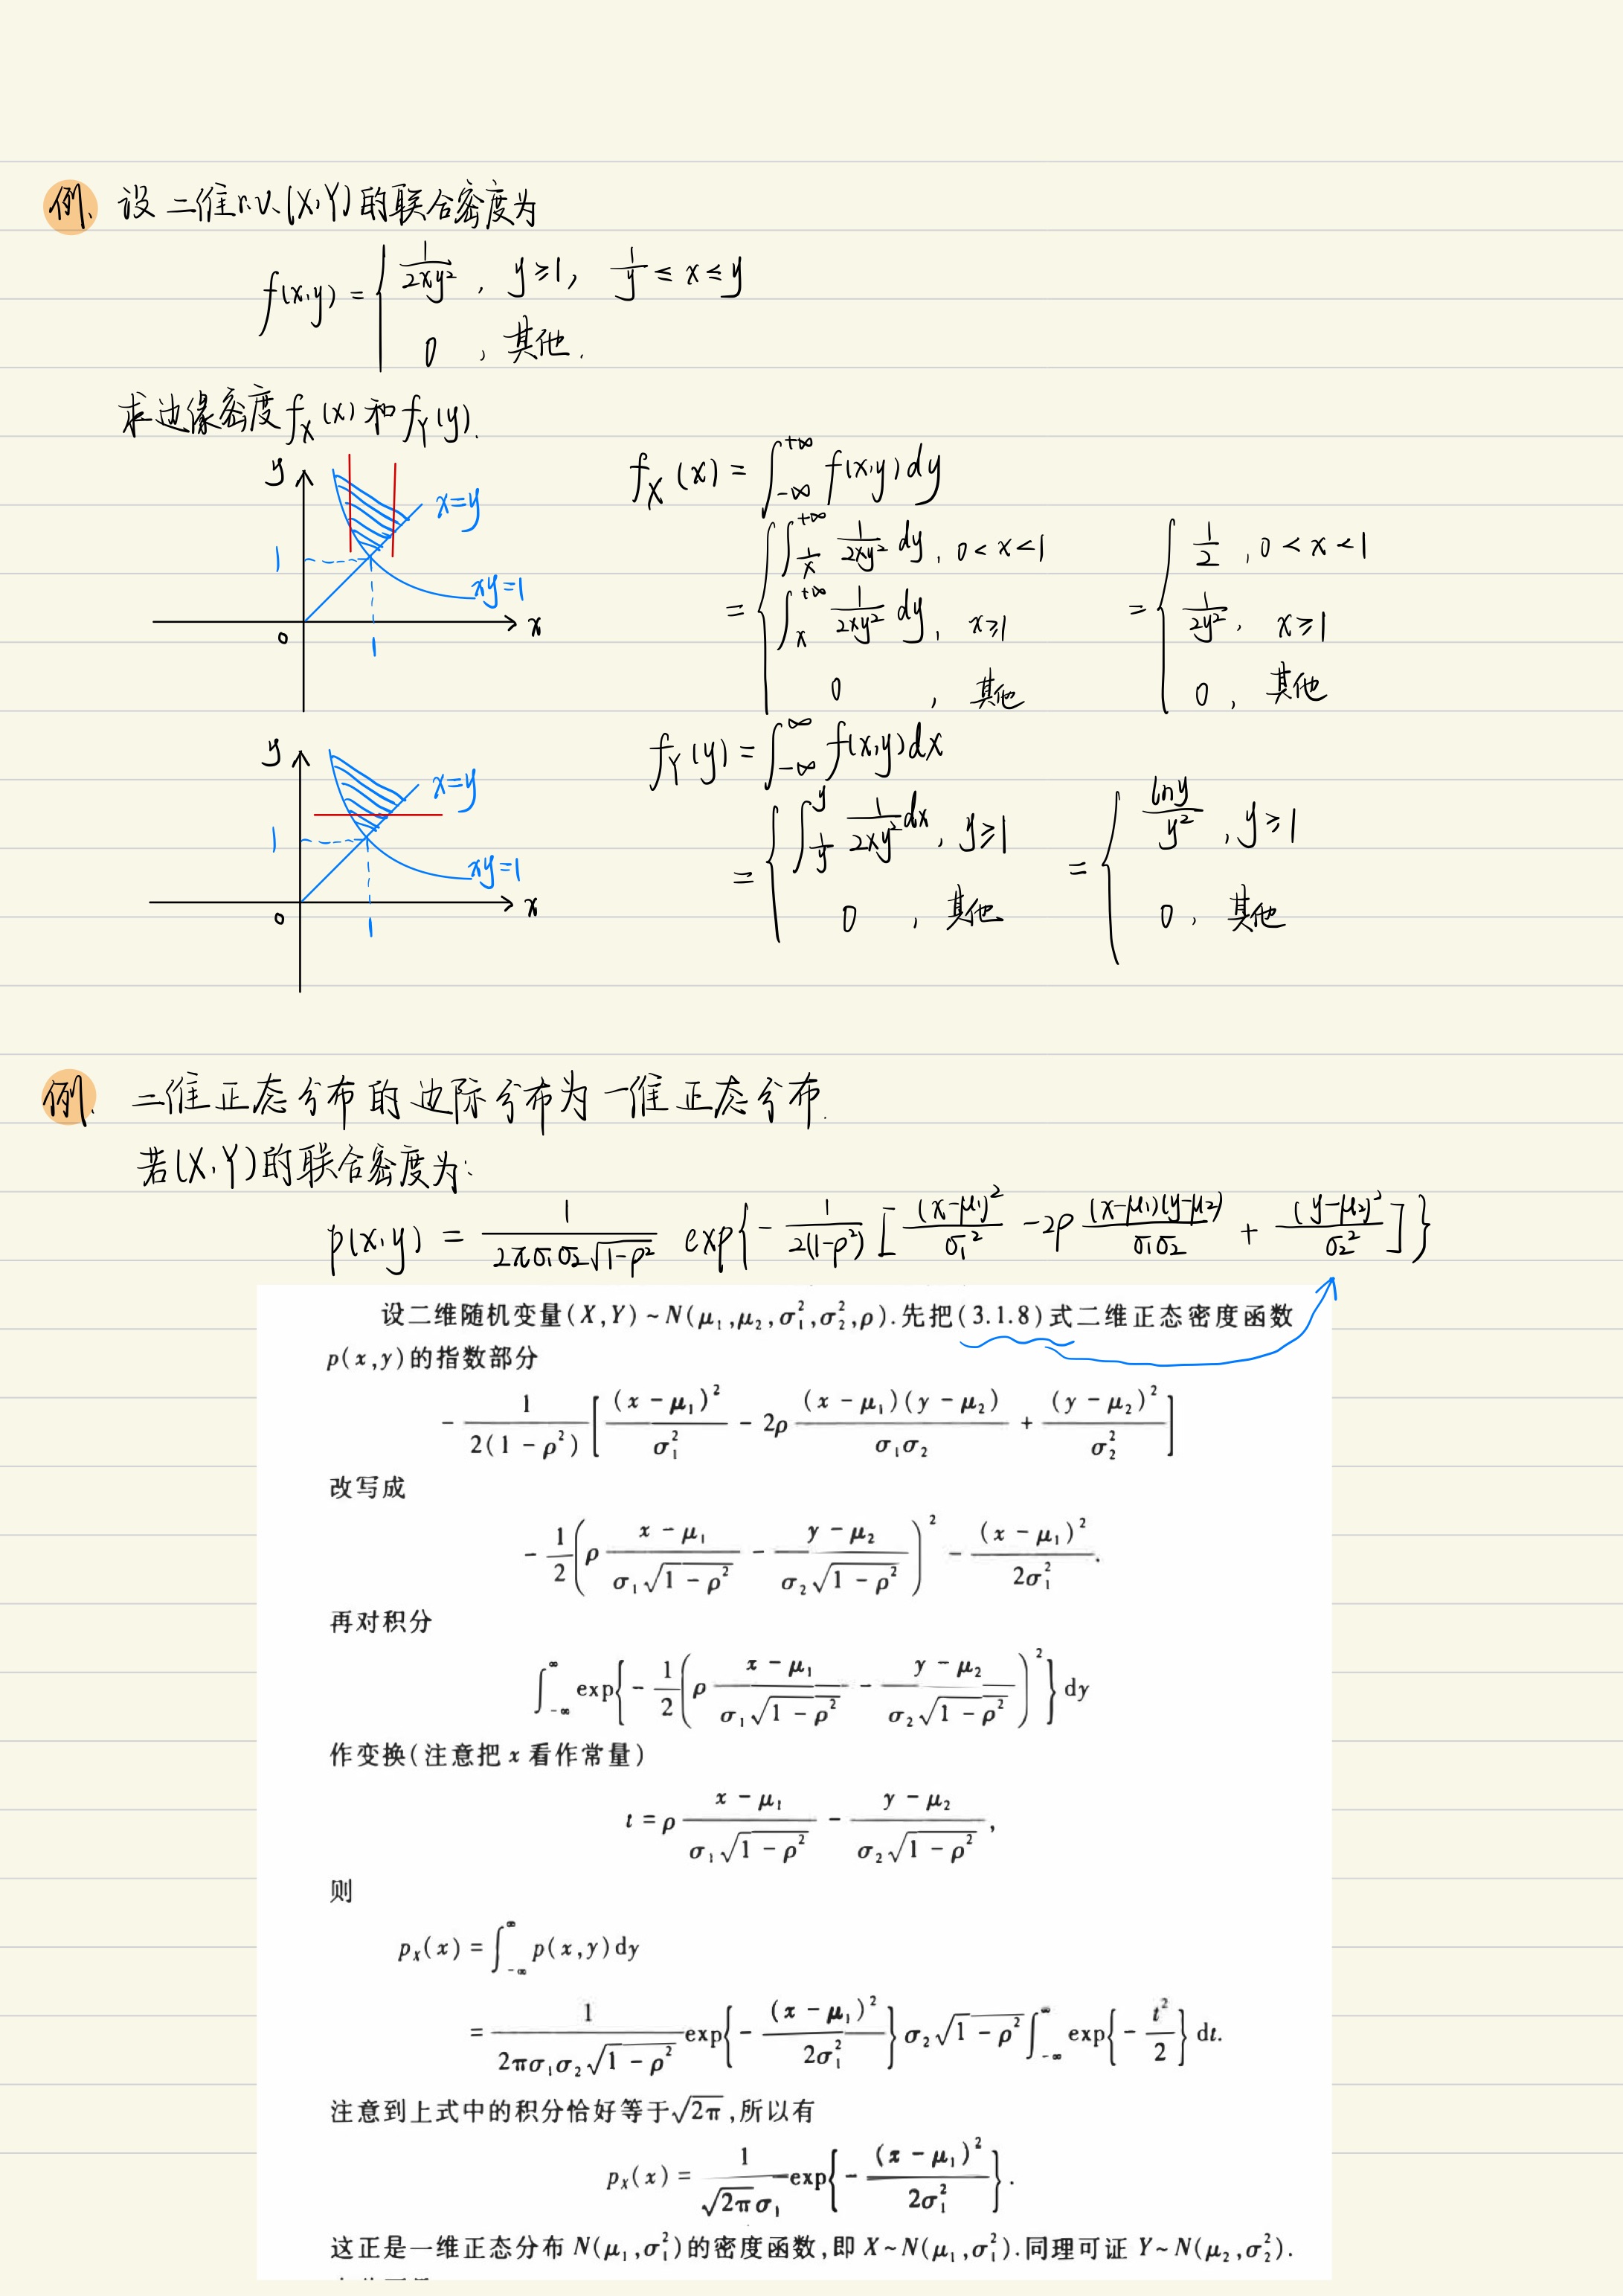 例. 设二维r.v.(X,Y)的联合密度为
f(x,y) = { 1/(2xy²) , y≥1, 1/y ≤ x ≤ y
0 , 其他.
求边缘密度f_X(x)和f_Y(y).
y
x=y
1
xy=1
0 1 x
f_X(x) = ∫_{-∞}^{+∞} f(x,y)dy
= { ∫_{1/x}^{+∞} 1/(2xy²) dy, 0<x<1
∫_x^{+∞} 1/(2xy²) dy, x≥1
0 , 其他
= { 1/2 , 0<x<1
1/(2y²), x≥1
0, 其他
y
x=y
1
xy=1
0 1 x
f_Y(y) = ∫_{-∞}^{∞} f(x,y)dx
= { ∫_{1/y}^{y} 1/(2xy²) dx, y≥1
0 , 其他
= { lny/y² , y≥1
0, 其他
例. 二维正态分布的边际分布为一维正态分布.
若(X,Y)的联合密度为:
p(x,y) = 1/(2πσ₁σ₂√(1-ρ²)) exp{- 1/(2(1-ρ²)) [(x-μ₁)²/σ₁² - 2ρ (x-μ₁)(y-μ₂)/(σ₁σ₂) + (y-μ₂)²/σ₂²]}
设二维随机变量(X,Y)~N(μ₁,μ₂,σ₁²,σ₂²,ρ).先把(3.1.8)式二维正态密度函数
p(x,y)的指数部分
- 1/(2(1-ρ²)) [(x-μ₁)²/σ₁² - 2ρ (x-μ₁)(y-μ₂)/(σ₁σ₂) + (y-μ₂)²/σ₂²]
改写成
- 1/2 (ρ (x-μ₁)/(σ₁√(1-ρ²)) - (y-μ₂)/(σ₂√(1-ρ²)))² - (x-μ₁)²/(2σ₁²).
再对积分
∫_{-∞}^{∞} exp{- 1/2 (ρ (x-μ₁)/(σ₁√(1-ρ²)) - (y-μ₂)/(σ₂√(1-ρ²)))²} dy
作变换(注意把 x 看作常量)
t = ρ (x-μ₁)/(σ₁√(1-ρ²)) - (y-μ₂)/(σ₂√(1-ρ²)),
则
p_X(x) = ∫_{-∞}^{∞} p(x,y)dy
= 1/(2πσ₁σ₂√(1-ρ²)) exp{- (x-μ₁)²/(2σ₁²)} σ₂√(1-ρ²) ∫_{-∞}^{∞} exp{- t²/2} dt.
注意到上式中的积分恰好等于√(2π),所以有
p_X(x) = 1/(√(2π)σ₁) exp{- (x-μ₁)²/(2σ₁²)}.
这正是一维正态分布 N(μ₁,σ₁²)的密度函数,即 X~N(μ₁,σ₁²).同理可证 Y~N(μ₂,σ₂²).